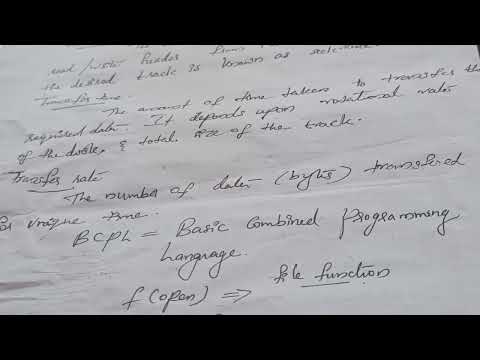 read/write header from
the desired track is known as seek time.
Transfer time
The amount of time taken to transfer the
required data. It depends upon rotational rates
of the disks, & total size of the track.
Transfer rate
The number of data (bytes) transfered
unique time.
BCPL = Basic Combined Programming
Language.
f(open) ⇒ file function